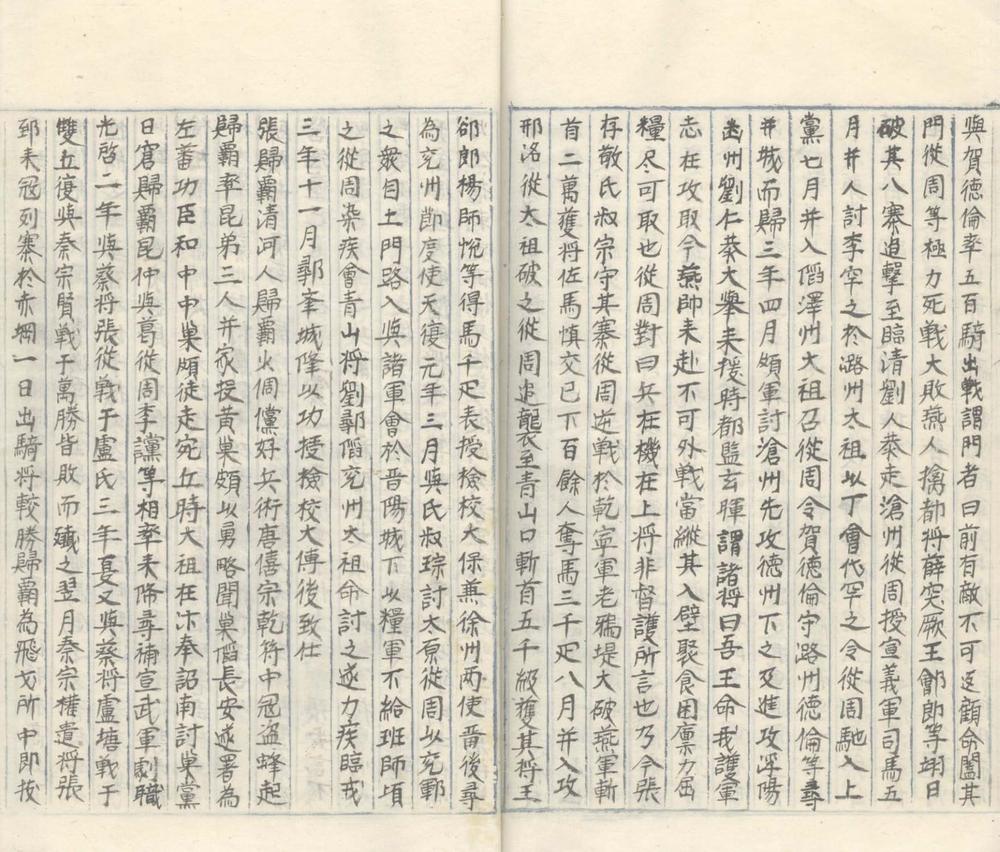 與賀德倫率五百騎出戰謂門者曰前有敵不可返顧命闔其
門從周等極力死戰大敗燕人擒都将薛突厥王鄶郎等翊日
破其八寨追擊至臨清劉人恭走滄州從周授宣義軍司馬五
月并人討李罕之於潞州太祖以丁會代罕之令從周馳入上
黨七月并入𠌥澤州大祖召從周令賀徳倫守路州徳倫等尋
弃城而歸三年四月頗軍討滄州先攻德州下之及進攻浮陽
幽州劉仁恭大舉来援時都監玄暉謂諸将曰吾王命我護軍
志在攻取今燕帥来赴不可外戰當縱其入壁聚食困廪力屈
糧尽可取也從周對曰兵在機在上将非督護所言也乃令張
存敬氏叔宗守其寨從周逆戰於乾寧軍老鴉堤大破燕軍斬
首二萬獲将佐馬慎交已下百餘人奪馬三千疋八月并入攻
邢洛從太祖破之從周追襲至青山口斬首五千級獲其将王
郤郎楊師悅等得馬千疋表授檢校大保兼徐州両使畨後尋
為兖州節度使天復元年三月與氏叔琮討太原從周以兖鄆
之衆自土門路入與諸軍會於晋陽城下以糧軍不給班師頃
之從周染疾會青山将劉鄩𠌥兖州太祖命討之遂力疾臨戎
三年十一月鄩峯城降以功授檢校大傅後致仕
張歸霸清河人歸霸火倜儻好兵術唐僖宗乾符中冦盗蜂起
歸霸率昆弟三人并家投黄巢頗以勇略聞巢𠌥長安遂署為
左蕃功臣和中中巢頗徒走宛丘時大祖在汴奉詔南討巢黨
日窘歸霸昆仲與葛從周李讜等相率来降尋補宣武軍劇職
光啓二年與蔡将張從戰于盧氏三年夏又與蔡将盧塘戰于
雙丘復與秦宗賢戦于萬勝皆敗而殱之翌月秦宗權遣将張
郅来冦列寨於赤堈一日出騎将較勝歸覇為飛戈所中即技